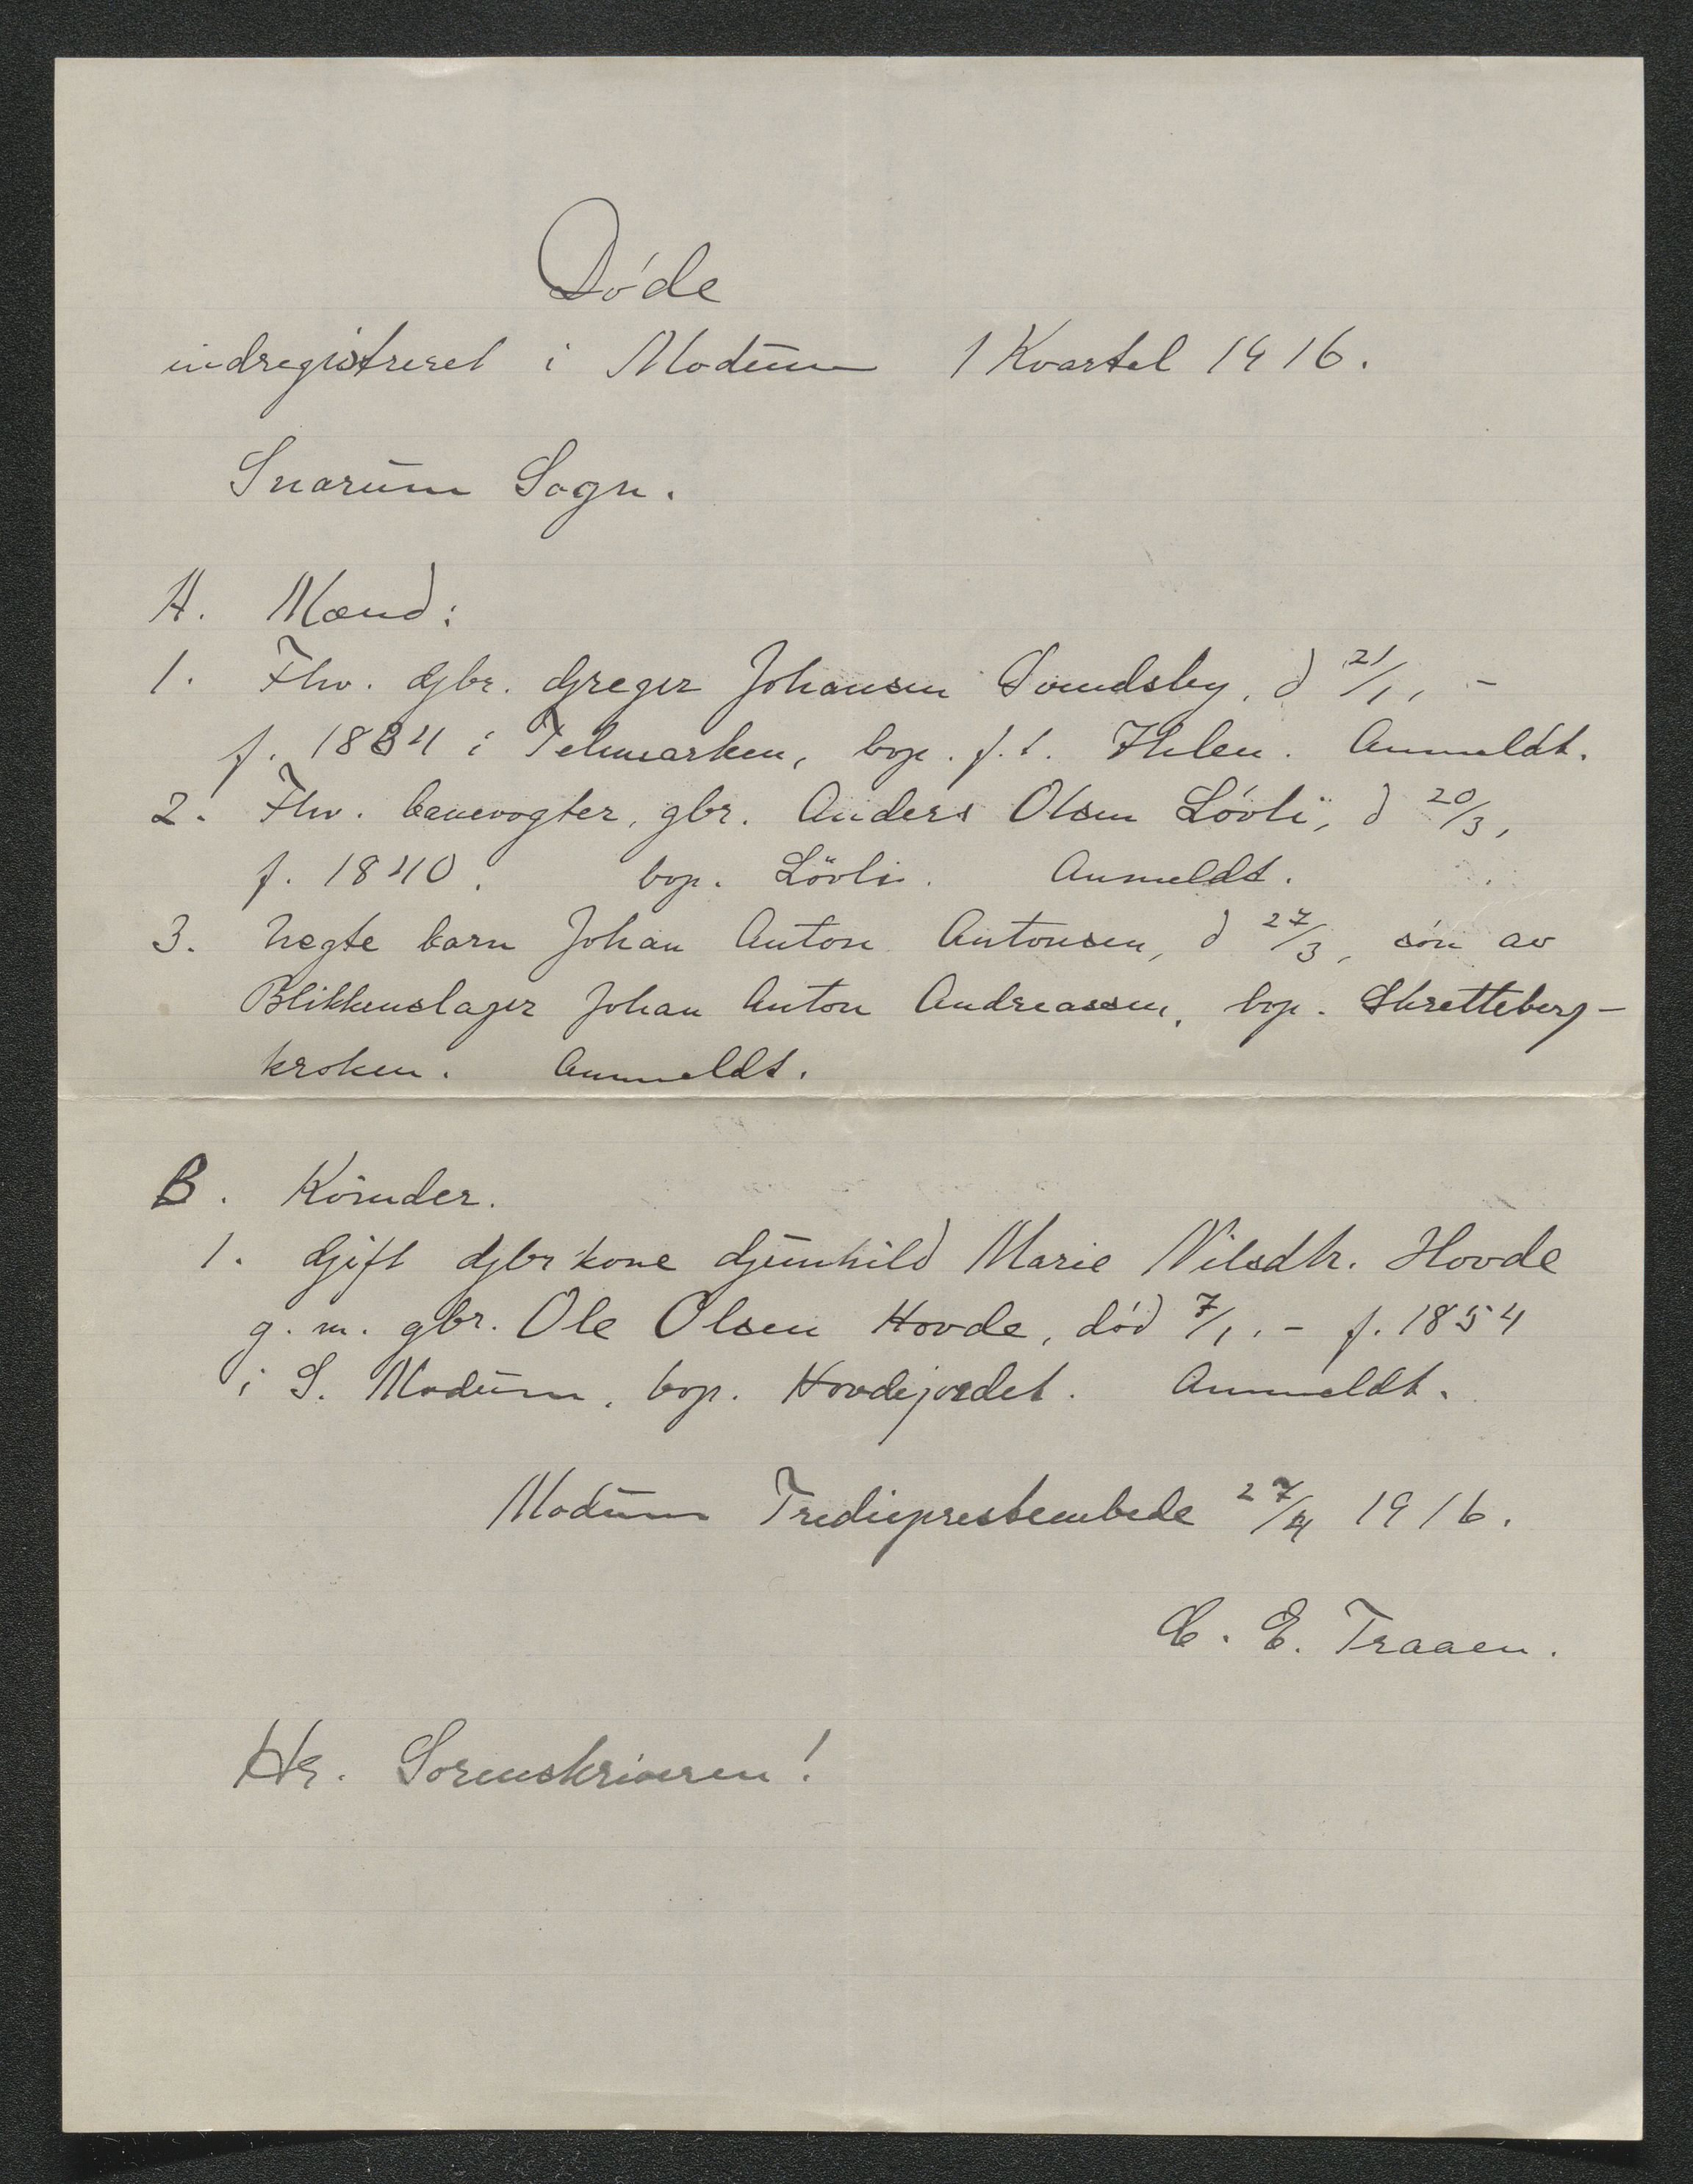 Døde
indregistreret i Modum 1 Kvartal 1916.
Snarum Sogn.
A. Mænd:
1. Fhv. Gbr. Greger Johansen Sundsby, d 21/1, -
f. 1834 i Telemarken, bop. f.t. Ihlen. Anmeldt.
2. Fhv. banevogter, gbr. Anders Olsen Løvli, d 20/3,
f. 1840. bop. Løvli. Anmeldt.
3. Uegte barn Johan Anton Antonsen, d 27/3, søn av
Blikkenslager Johan Anton Andreassen, bop. Skretteberg-
kroken. Anmeldt.
B. Kvinder.
1. Gift Gbr kone Gunhild Marie Nilsdtr. Hovde
g. m. gbr. Ole Olsen Hovde, død 7/1. - f. 1854
i S. Modum, bop. Hovdejordet. Anmeldt.
Modum Trediepresteembede 27/4 1916.
C. E. Traaen.
Hr. Sorenskriveren!